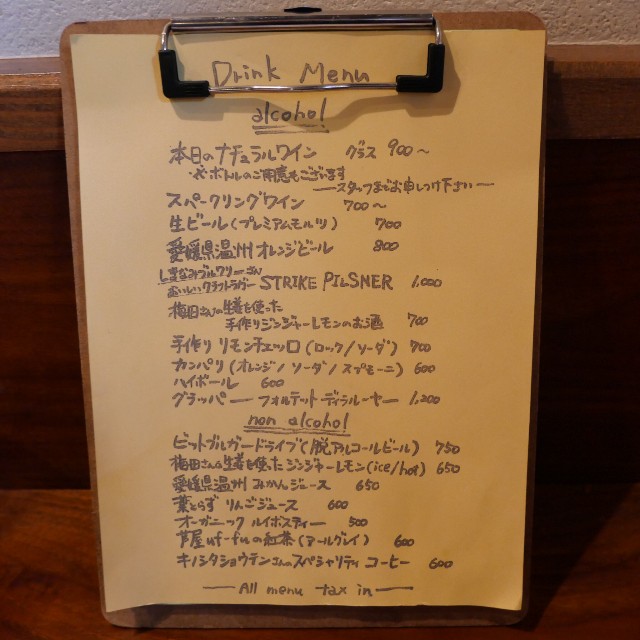 Drink Menu
alcohol
本日のナチュラルワイン グラス 900〜
※ボトルのご用意もございます
―スタッフまでお申しつけ下さい―
スパークリングワイン 700〜
生ビール(プレミアムモルツ) 700
愛媛県温州オレンジビール 800
しまなみブルワリーさん
おいしいクラフトラガー STRIKE PILSNER 1,000
梅田さんの生姜を使った
手作りジンジャーレモンのお酒 700
手作り リモンチェッロ(ロック/ソーダ) 700
カンパリ(オレンジ/ソーダ/スプモーニ) 600
ハイボール 600
グラッパー フォルテット ディラルーヤー 1,200
non alcohol
ビットブルガードライブ(脱アルコールビール) 750
梅田さんの生姜を使ったジンジャーレモン(ice/hot) 650
愛媛県温州 みかんジュース 650
葉とらず りんごジュース 600
オーガニック ルイボスティー 500
芦屋uf-fuの紅茶(アールグレイ) 600
キノシタショウテンさんのスペシャリティ コーヒー 600
― All menu tax in ―